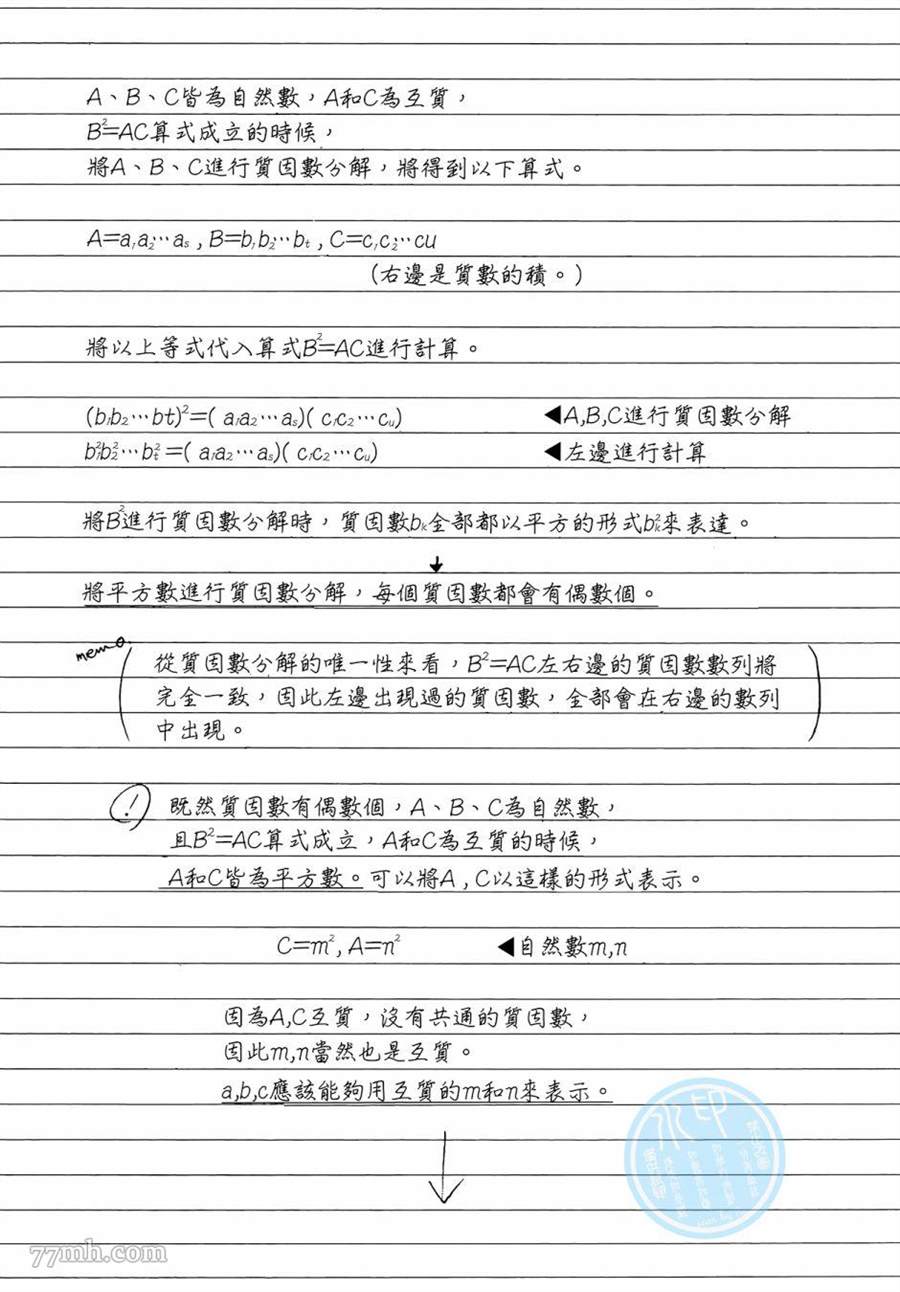 A、B、C皆為自然數，A和C為互質，
B²=AC算式成立的時候，
將A、B、C進行質因數分解，將得到以下算式。
A=a₁a₂…aₛ , B=b₁b₂…bₜ , C=c₁c₂…cu
(右邊是質數的積。)
將以上等式代入算式B²=AC進行計算。
(b₁b₂…bt)²=( a₁a₂…aₛ)( c₁c₂…cᵤ) ◀A,B,C進行質因數分解
b₁²b₂²…bₜ²=( a₁a₂…aₛ)( c₁c₂…cᵤ) ◀左邊進行計算
將B²進行質因數分解時，質因數bₖ全部都以平方的形式bₖ²來表達。
↓
將平方數進行質因數分解，每個質因數都會有偶數個。
memo.
從質因數分解的唯一性來看，B²=AC左右邊的質因數數列將
完全一致，因此左邊出現過的質因數，全部會在右邊的數列
中出現。
! 既然質因數有偶數個，A、B、C為自然數，
且B²=AC算式成立，A和C為互質的時候，
A和C皆為平方數。可以將A , C以這樣的形式表示。
C=m², A=n² ◀自然數m,n
因為A,C互質，沒有共通的質因數，
因此m,n當然也是互質。
a,b,c應該能夠用互質的m和n來表示。
↓
水印
77mh.com